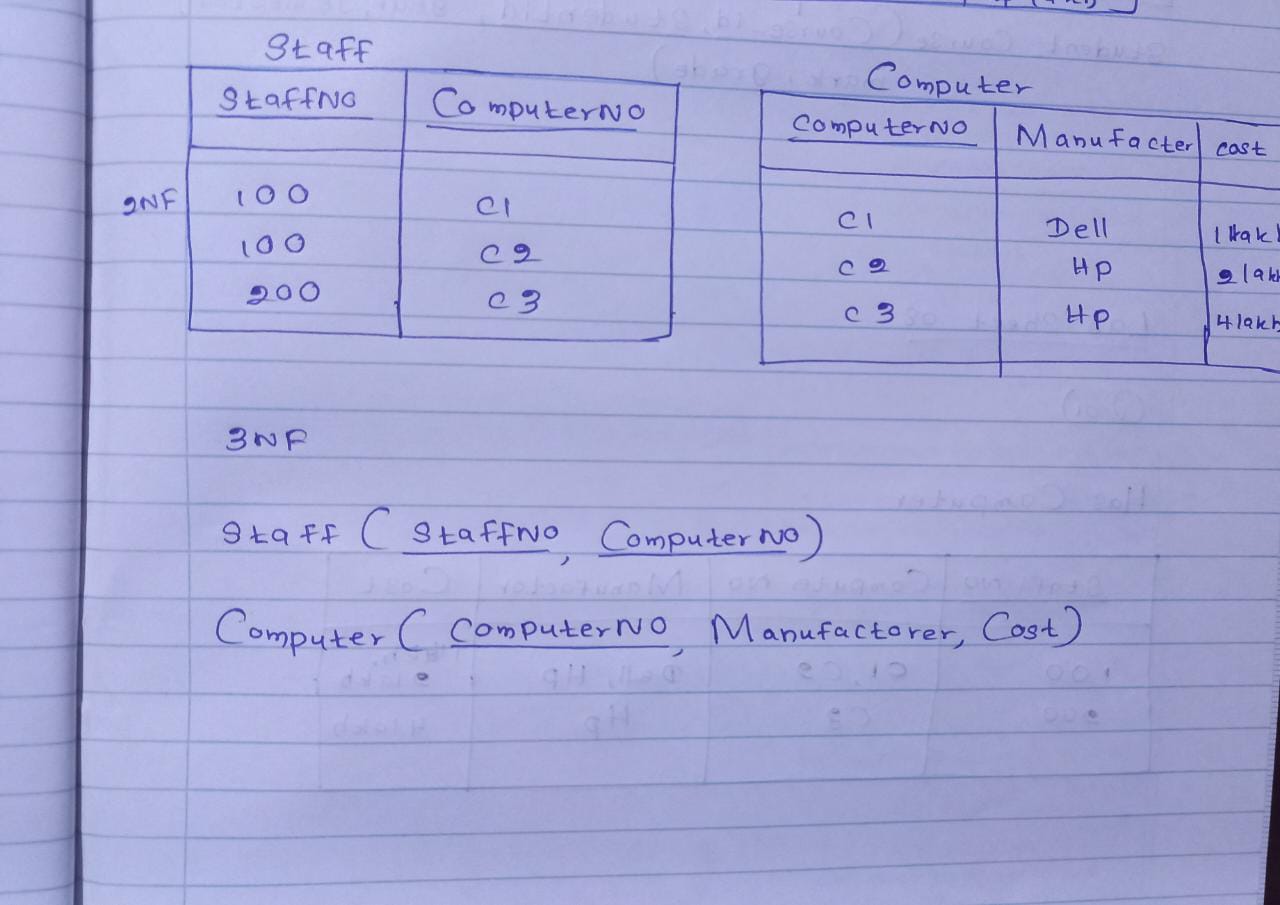 Staff
StaffNo ComputerNO
2NF
100 C1
100 C2
200 C3
Computer
ComputerNO Manufacter cost
C1 Dell
C2 Hp 2lakh
C3 Hp 4lakh
3NF
Staff ( StaffNo, ComputerNo)
Computer ( ComputerNO, Manufactorer, Cost)